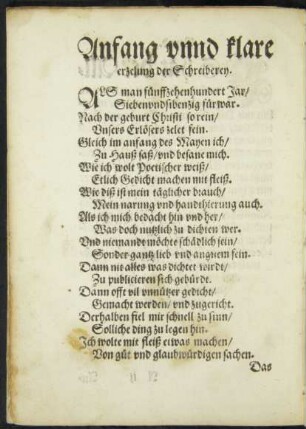 Anfang vnnd klare
erzelung der Schreiberey.
ALS man fünffzehenhundert Jar/
Siebenvndsibenzig fürwar.
Nach der geburt Christi so rein/
Vnsers Erlösers zelet fein.
Gleich im anfang des Mayen ich/
Zu Hauß saß/vnd besane mich.
Wie ich wolt Poetischer weiß/
Etlich Gedicht machen mit fleiß.
Wie diß ist mein täglicher brauch/
Mein narung vnd handthierung auch.
Als ich mich bedacht hin vnd her/
Was doch nutzlich zu dichten wer.
Vnd niemandt möchte schädlich sein/
Sonder gantz lieb vnd angnem fein.
Dann nit alles was dichtet wirdt/
Zu publicieren sich gebürdt.
Dann offt vil vnnützer gedicht/
Gemacht werden/vnd zugericht.
Derhalben fiel mir schnell zu sinn/
Solliche ding zu legen hin.
Ich wolte mit fleiß etwas machen/
Von güt vnd glaubwürdigen sachen.
Das